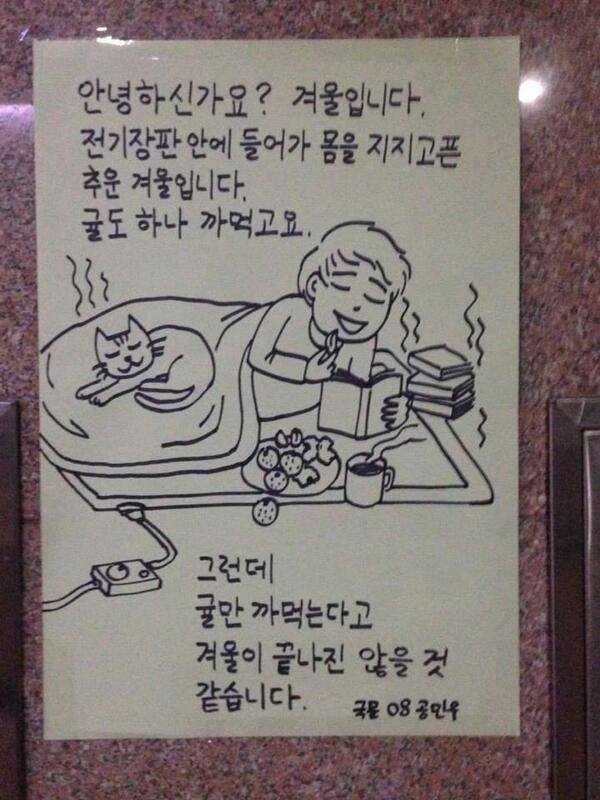 안녕하신가요? 겨울입니다.
전기장판 안에 들어가 몸을 지지고픈
추운 겨울입니다.
귤도 하나 까먹고요.
그런데
귤만 까먹는다고
겨울이 끝나진 않을 것
같습니다.
국문 08 공민우